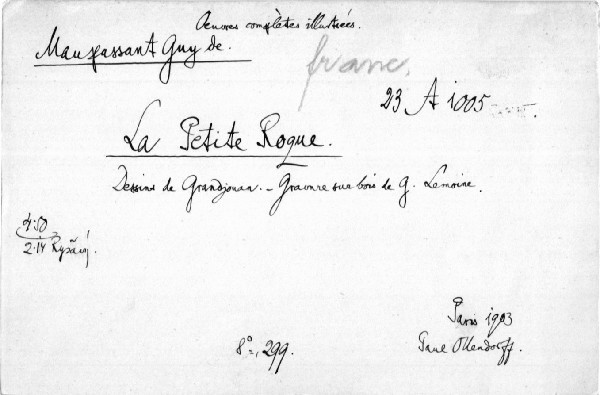 Oeuvres complètes illustrées.
Maupassant Guy de.
franc.
23 A 1005
La Petite Roque.
Dessins de Grandjouan. - Gravure sur bois de G. Lemoine.
4·50
2·14
Paris 1903
8°, 299.
Paul Ollendorff.